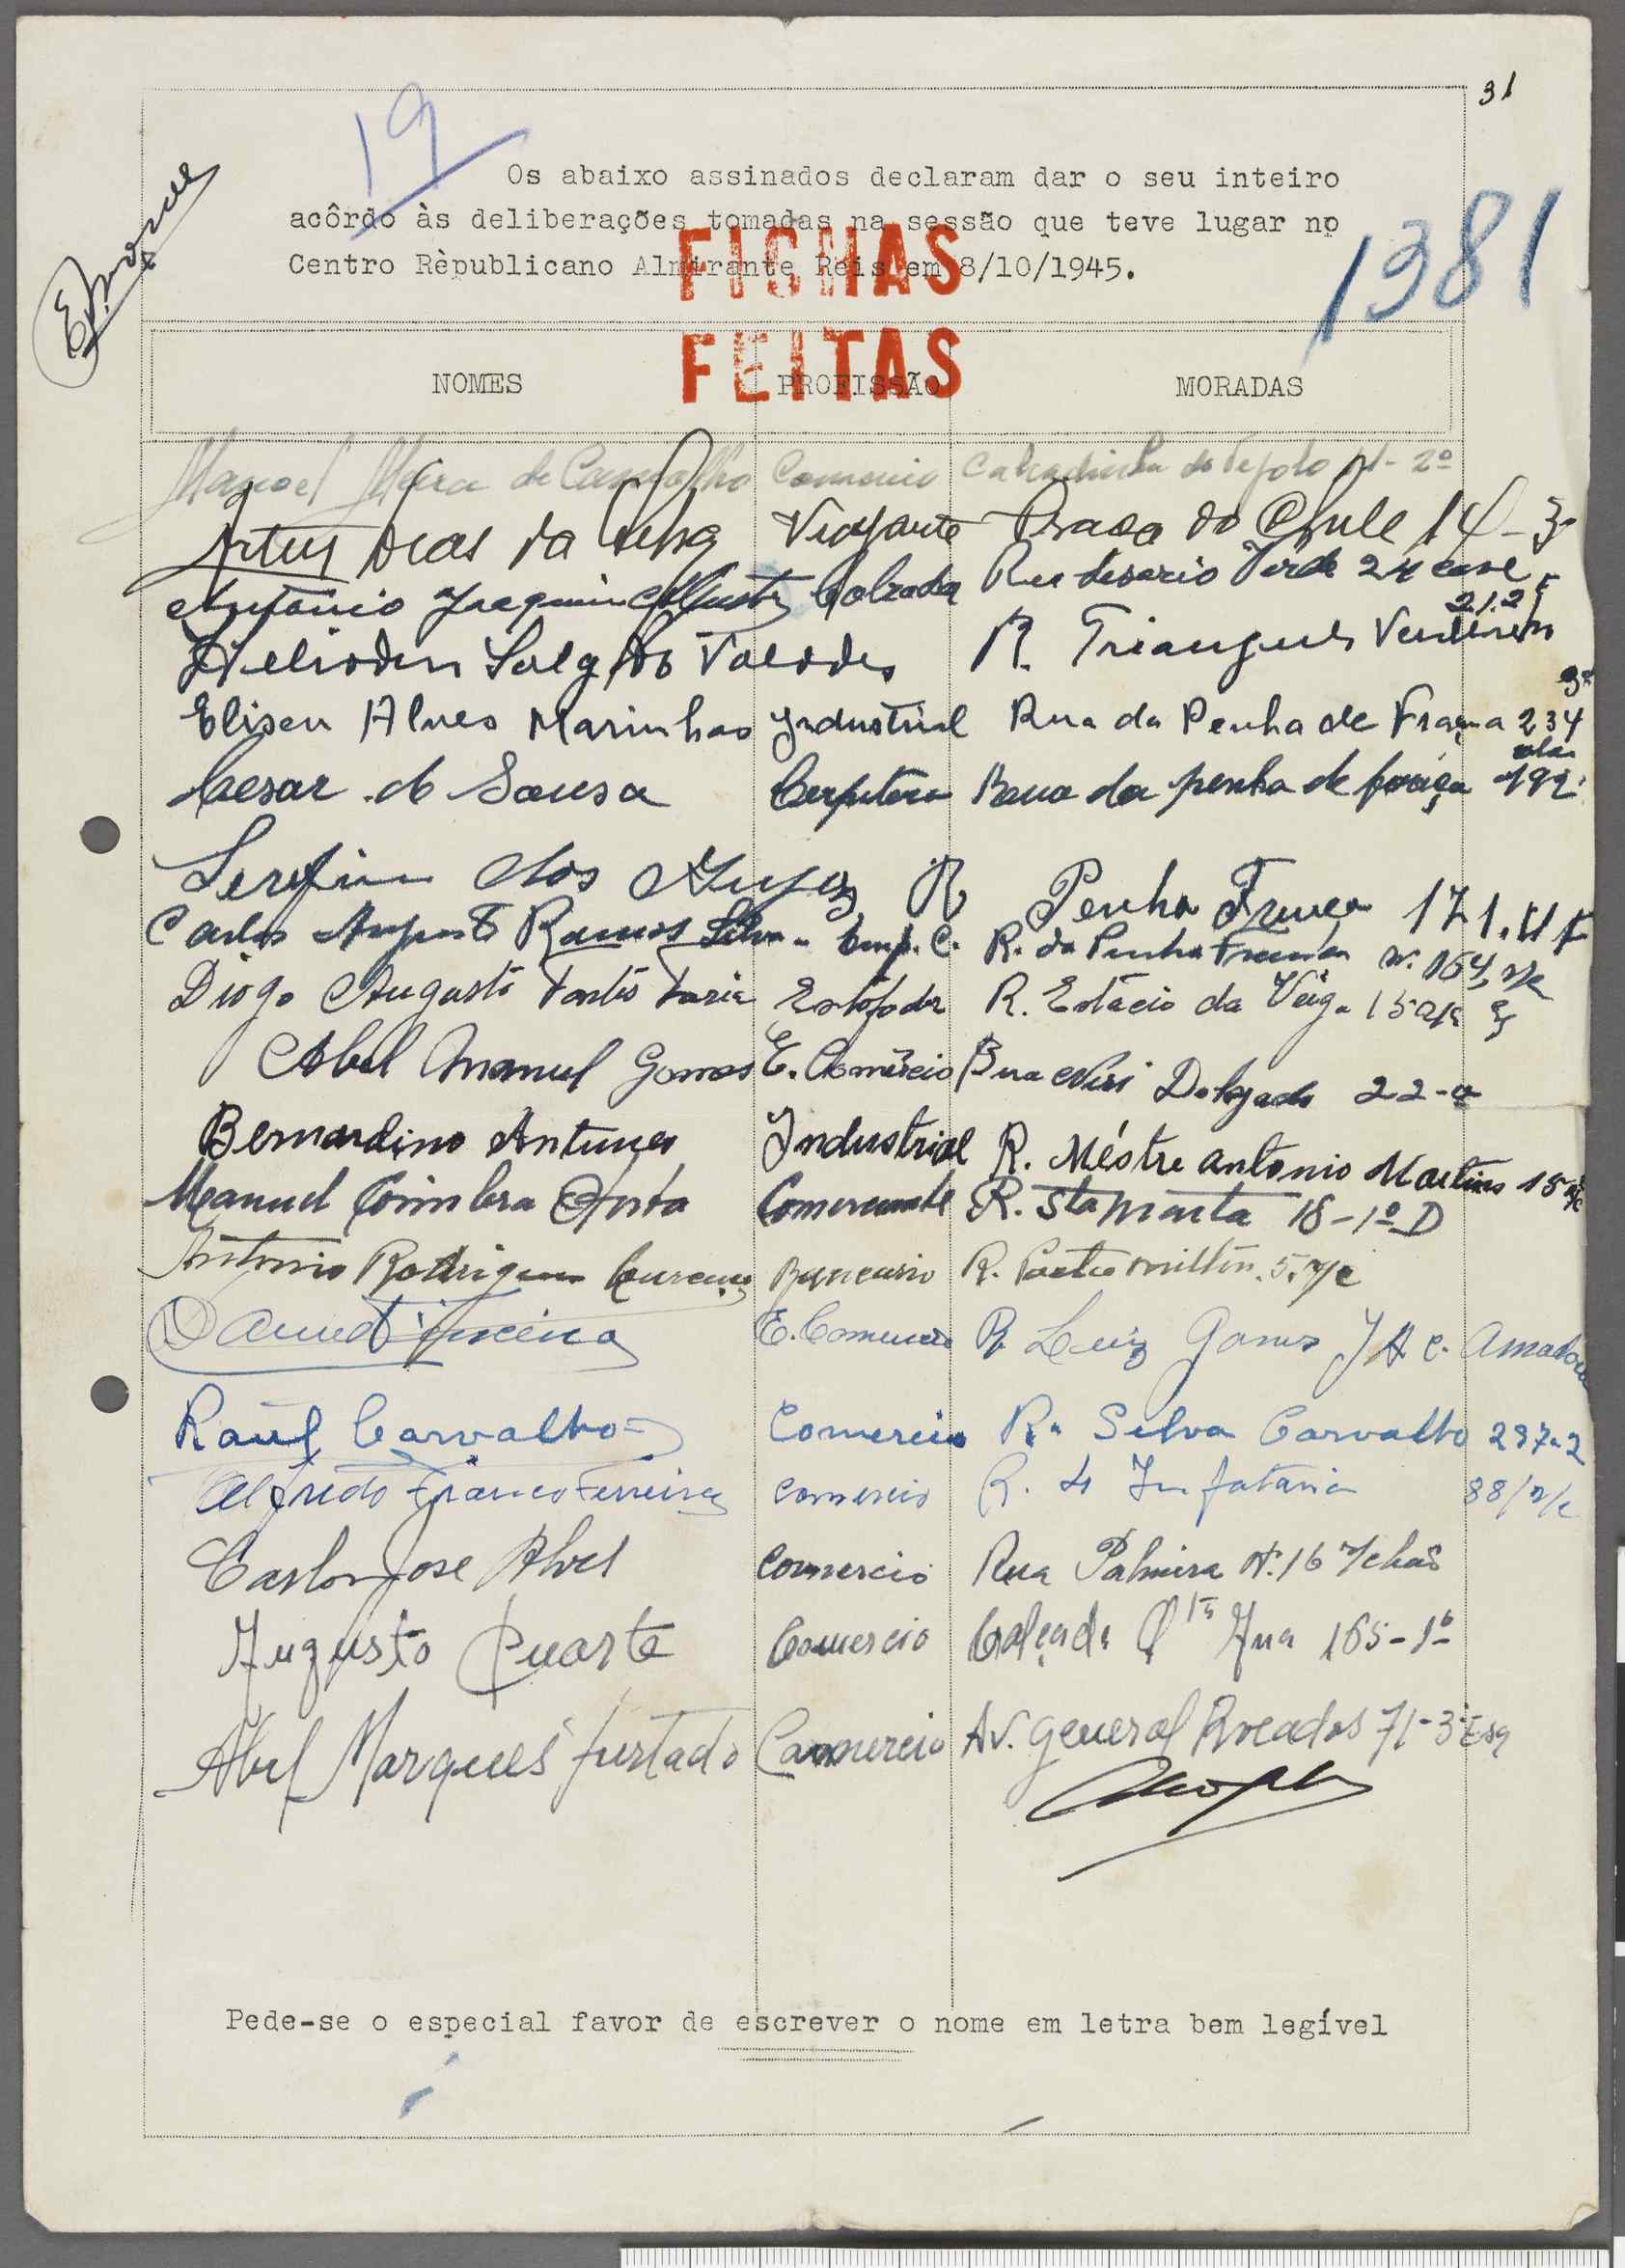 31
19
Os abaixo assinados declaram dar o seu inteiro
acôrdo às deliberações tomadas na sessão que teve lugar no
Centro Rèpublicano Almirante Reis em 8/10/1945.
1381
FICHAS
FEITAS
NOMES PROFISSÃO MORADAS
Manoel de Carvalho Comercio Calçadinha do 2º
Artur Dias da Silva Viajante Praça do Chile 14-3º
António Joaquim Rua Cesario Verde 24 cave
21.2º E
Heliodoro Salgado R. Triangulo Vermelho
3º
Eliseu Alves Marinhas Industrial Rua da Penha de França 234
Cesar de Sousa Rua da penha de frança 192
Serafim dos Anjos R Penha França 171.
Carlos Augusto Ramos Silva - Emp. C. R. da Penha França Nº 164, r/c
Diogo Augusto Faria Estofador R. Estácio da Veiga 15 r/c E
Abel Manuel Gomes E. Comércio Rua Neri Delgado 22-
Bernardino Antunes Industrial R. Méstre antonio Martins 15 r/c
Manuel Coimbra Comerciante R. Sta Marta 18-1º D
Antonio Rodrigues Bancario R. Poeta Milton. 5. r/c
E. Comercio R. Luiz Gomes J A C. Amadora
Raúl Carvalho Comercio Rª Silva Carvalho 237-2
Alfredo Franco Ferreira comercio R. 4 Infataria 88/r/c
Carlos Jose Alves Comercio Rua Palmira Nº 16 r/chaõ
Augusto Duarte Comercio Calçada Stª Ana 165-1º
Abel Marques furtado Commercio Av. General Roçadas 71-3º Esq
Pede-se o especial favor de escrever o nome em letra bem legível